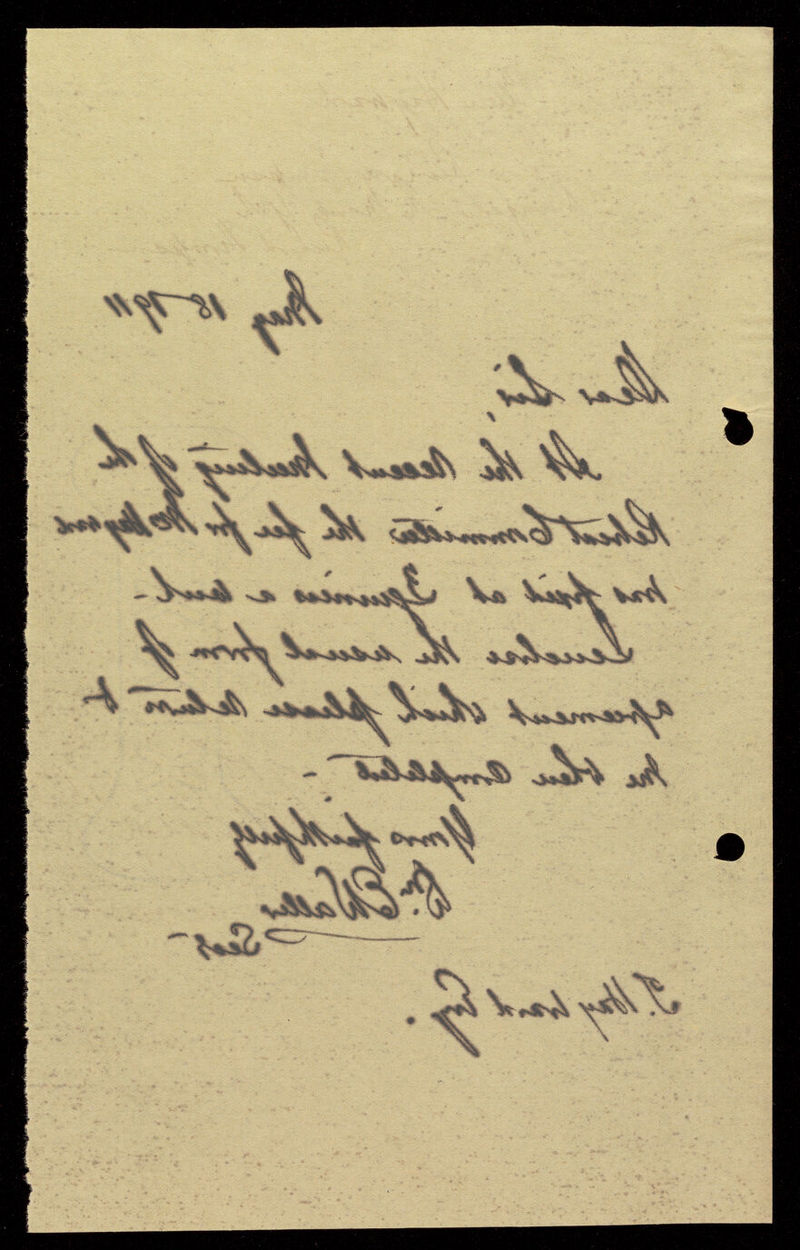 May 18 1911
Dear Sir,
At the recent meeting of the
Retreat Committee the fee for Mr
was fixed at 3 guineas a week -
I enclose the usual form of
agreement which please return to
me when completed -
Yours faithfully
Wm. E Waller
Secy
T. Hayward Esq.